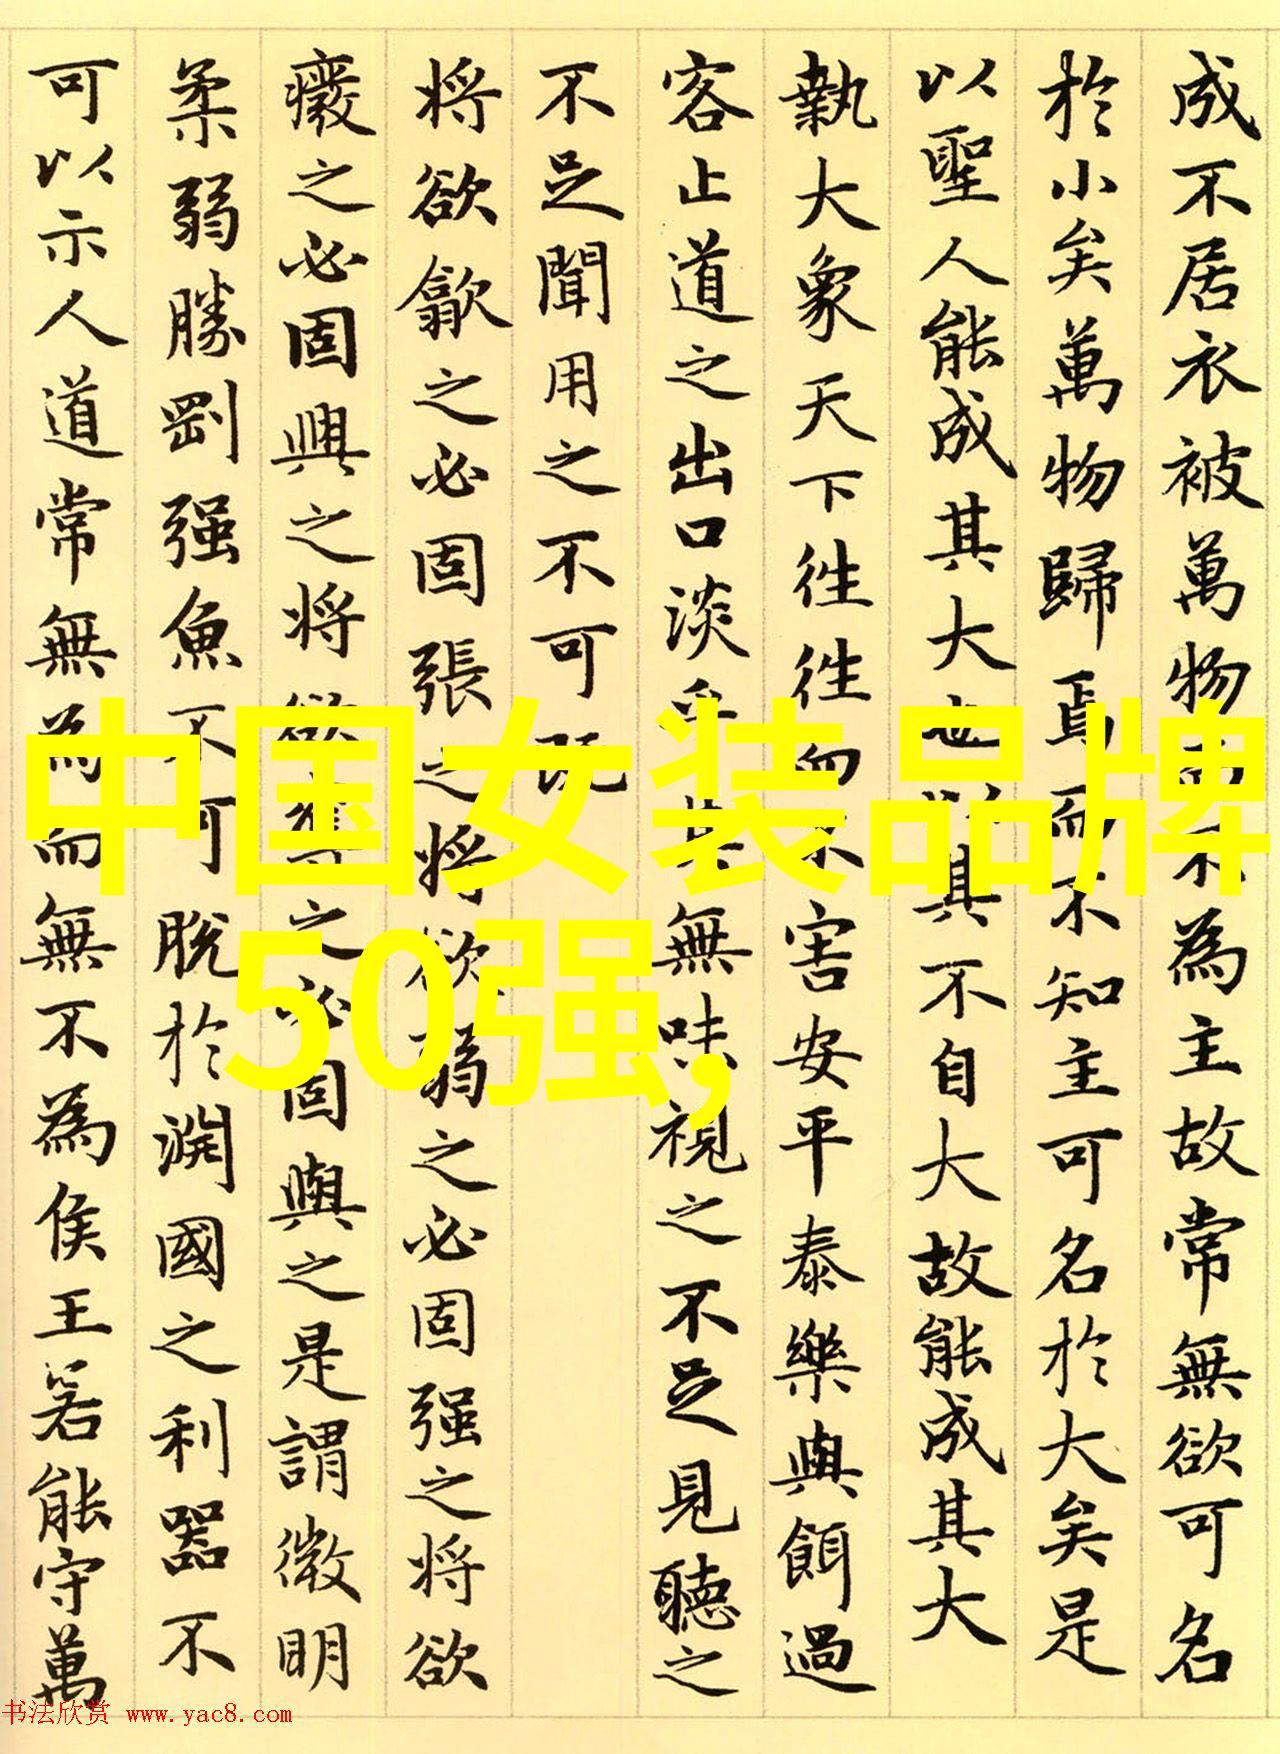 成不居衣被萬物而不為主故常無欲可名
於小矣萬物歸焉而不知主可名於大矣是
以聖人能成其大也以其不自大故能成其大
執大象天下往往而不害安平泰樂與餌過
客止道之出口淡乎其無味視之不足見聽之
不足聞用之不可既
将欲歙之必固張之将欲弱之必固强之将欲
癈之必固興之将欲奪之必固與之是謂微明
柔弱勝剛强魚不可脫於淵國之利器不
可以示人道常無為而無不為侯王若能守萬
中国女装品牌
50强,
书法欣赏 www.yac8.com